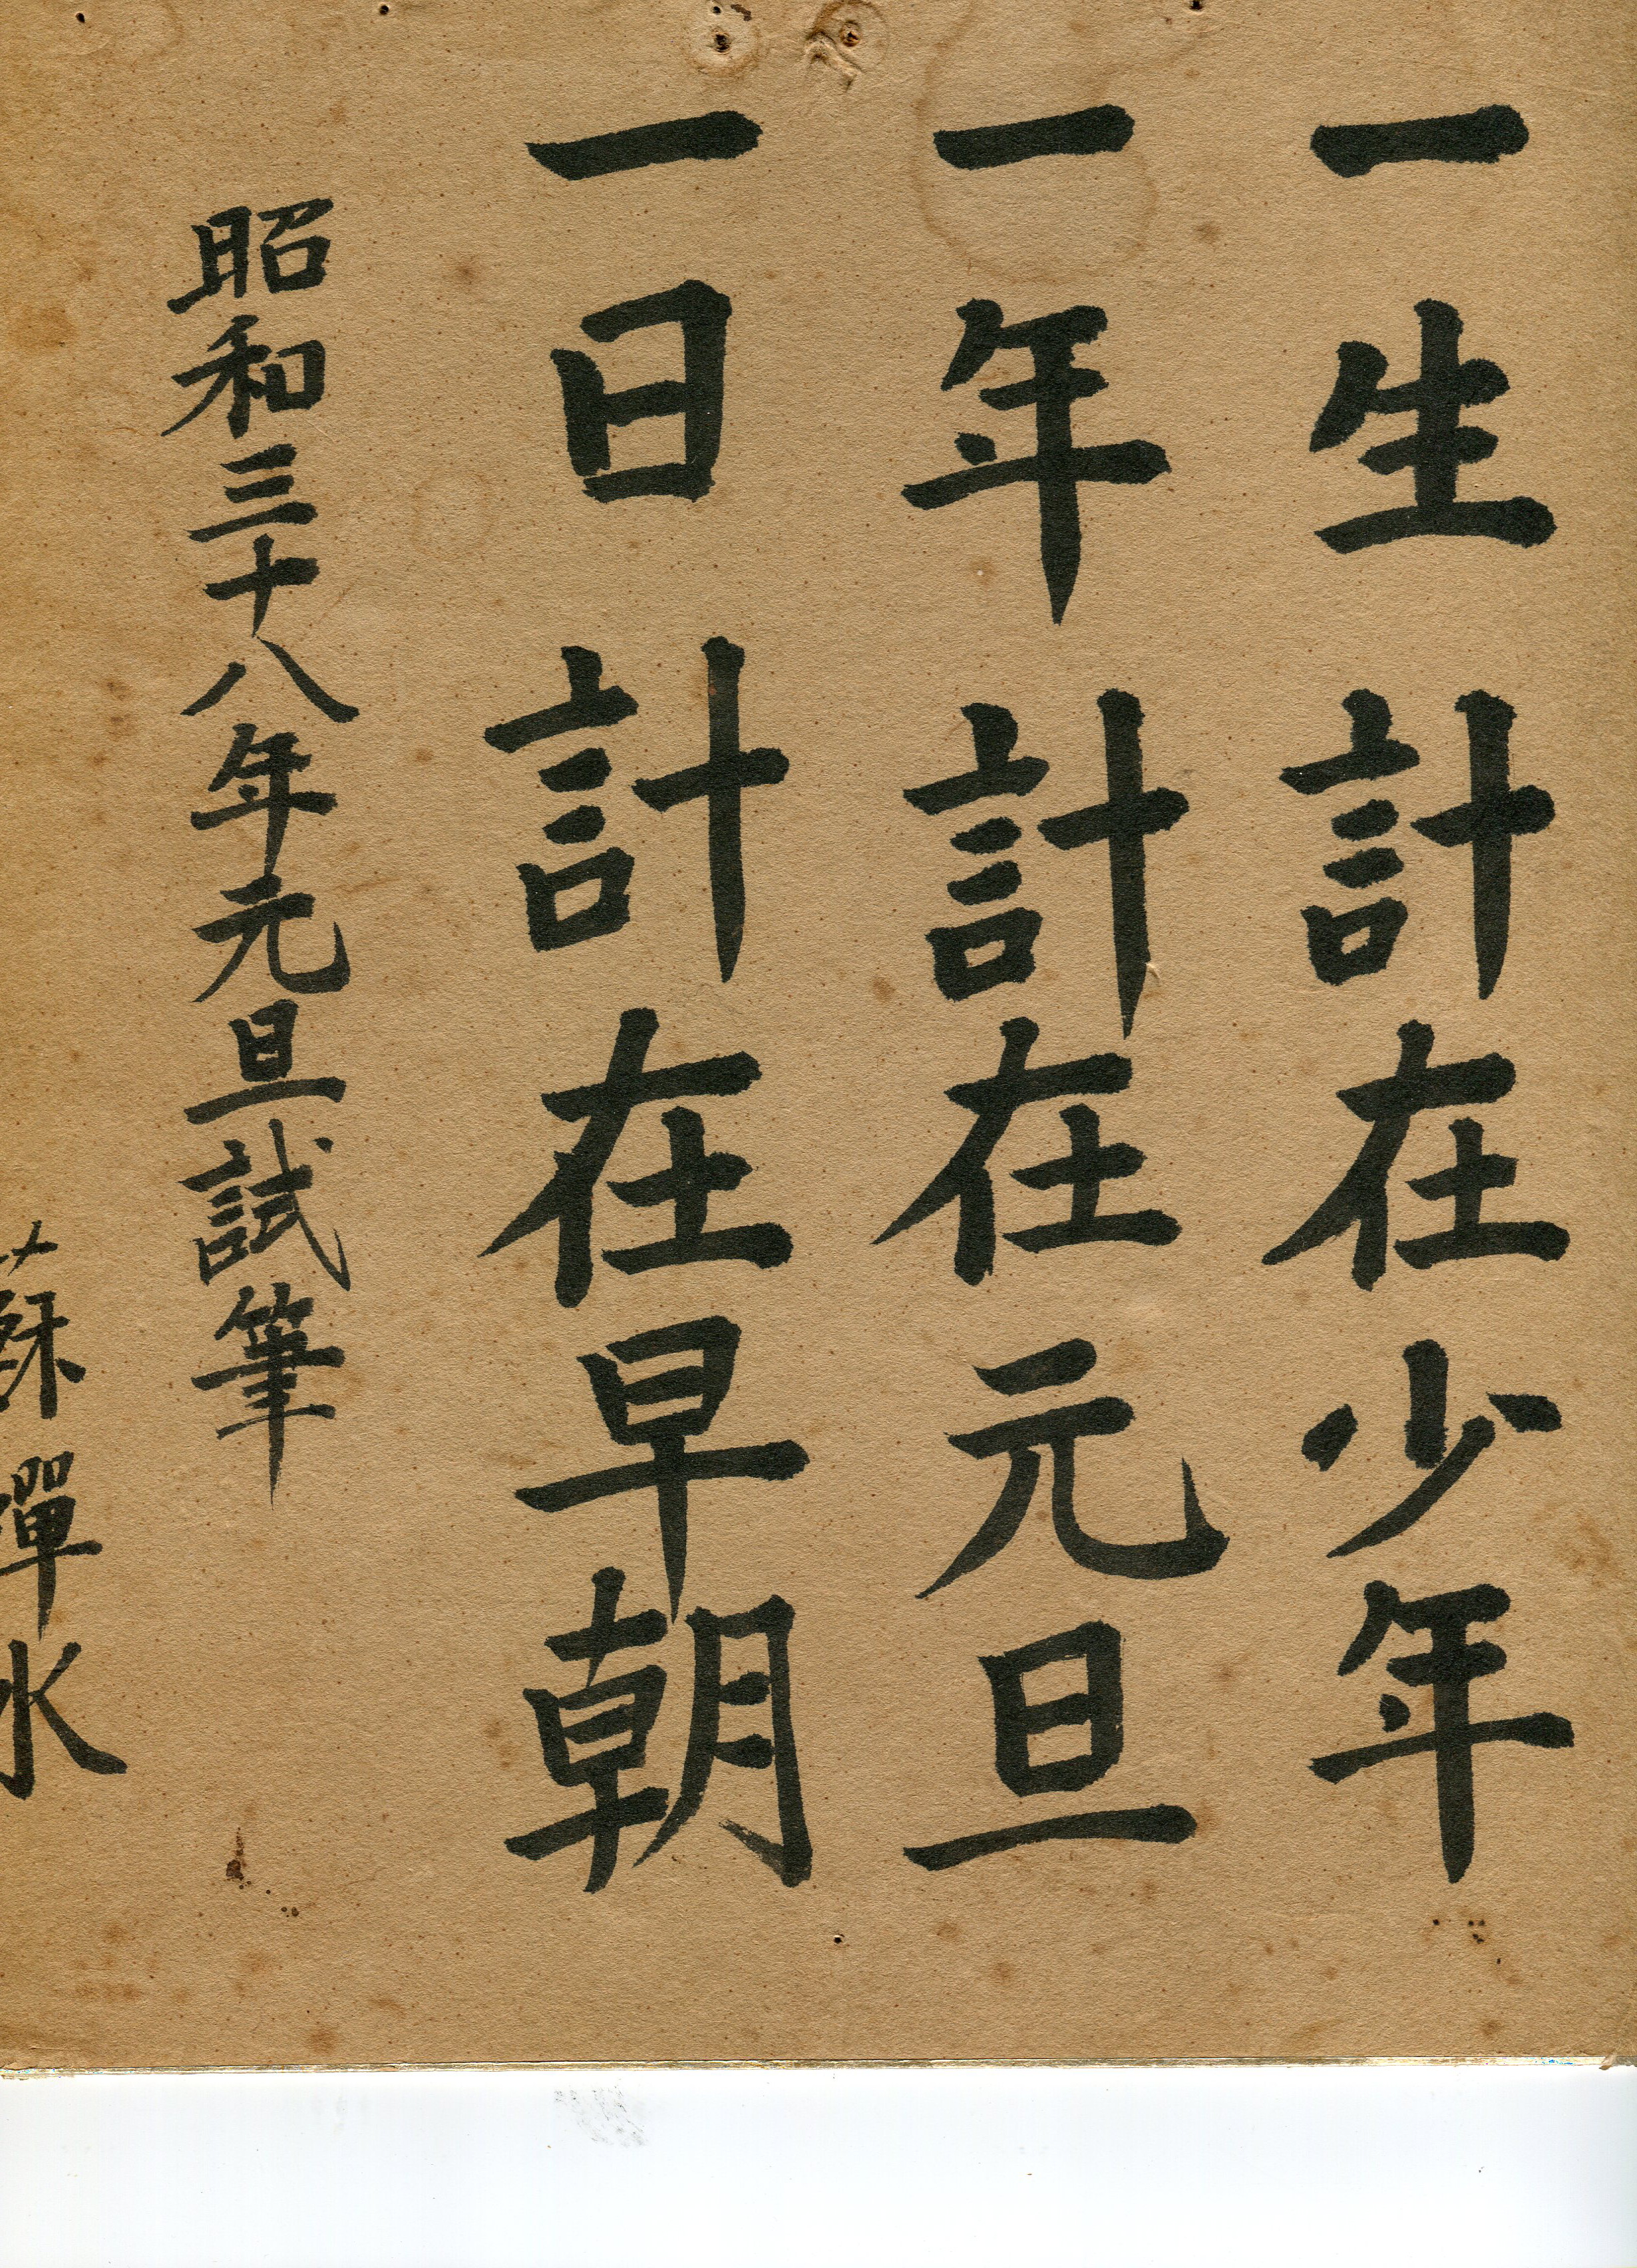 一生計在少年
一年計在元旦
一日計在早朝
昭和三十八年元旦試筆
蘇禪水